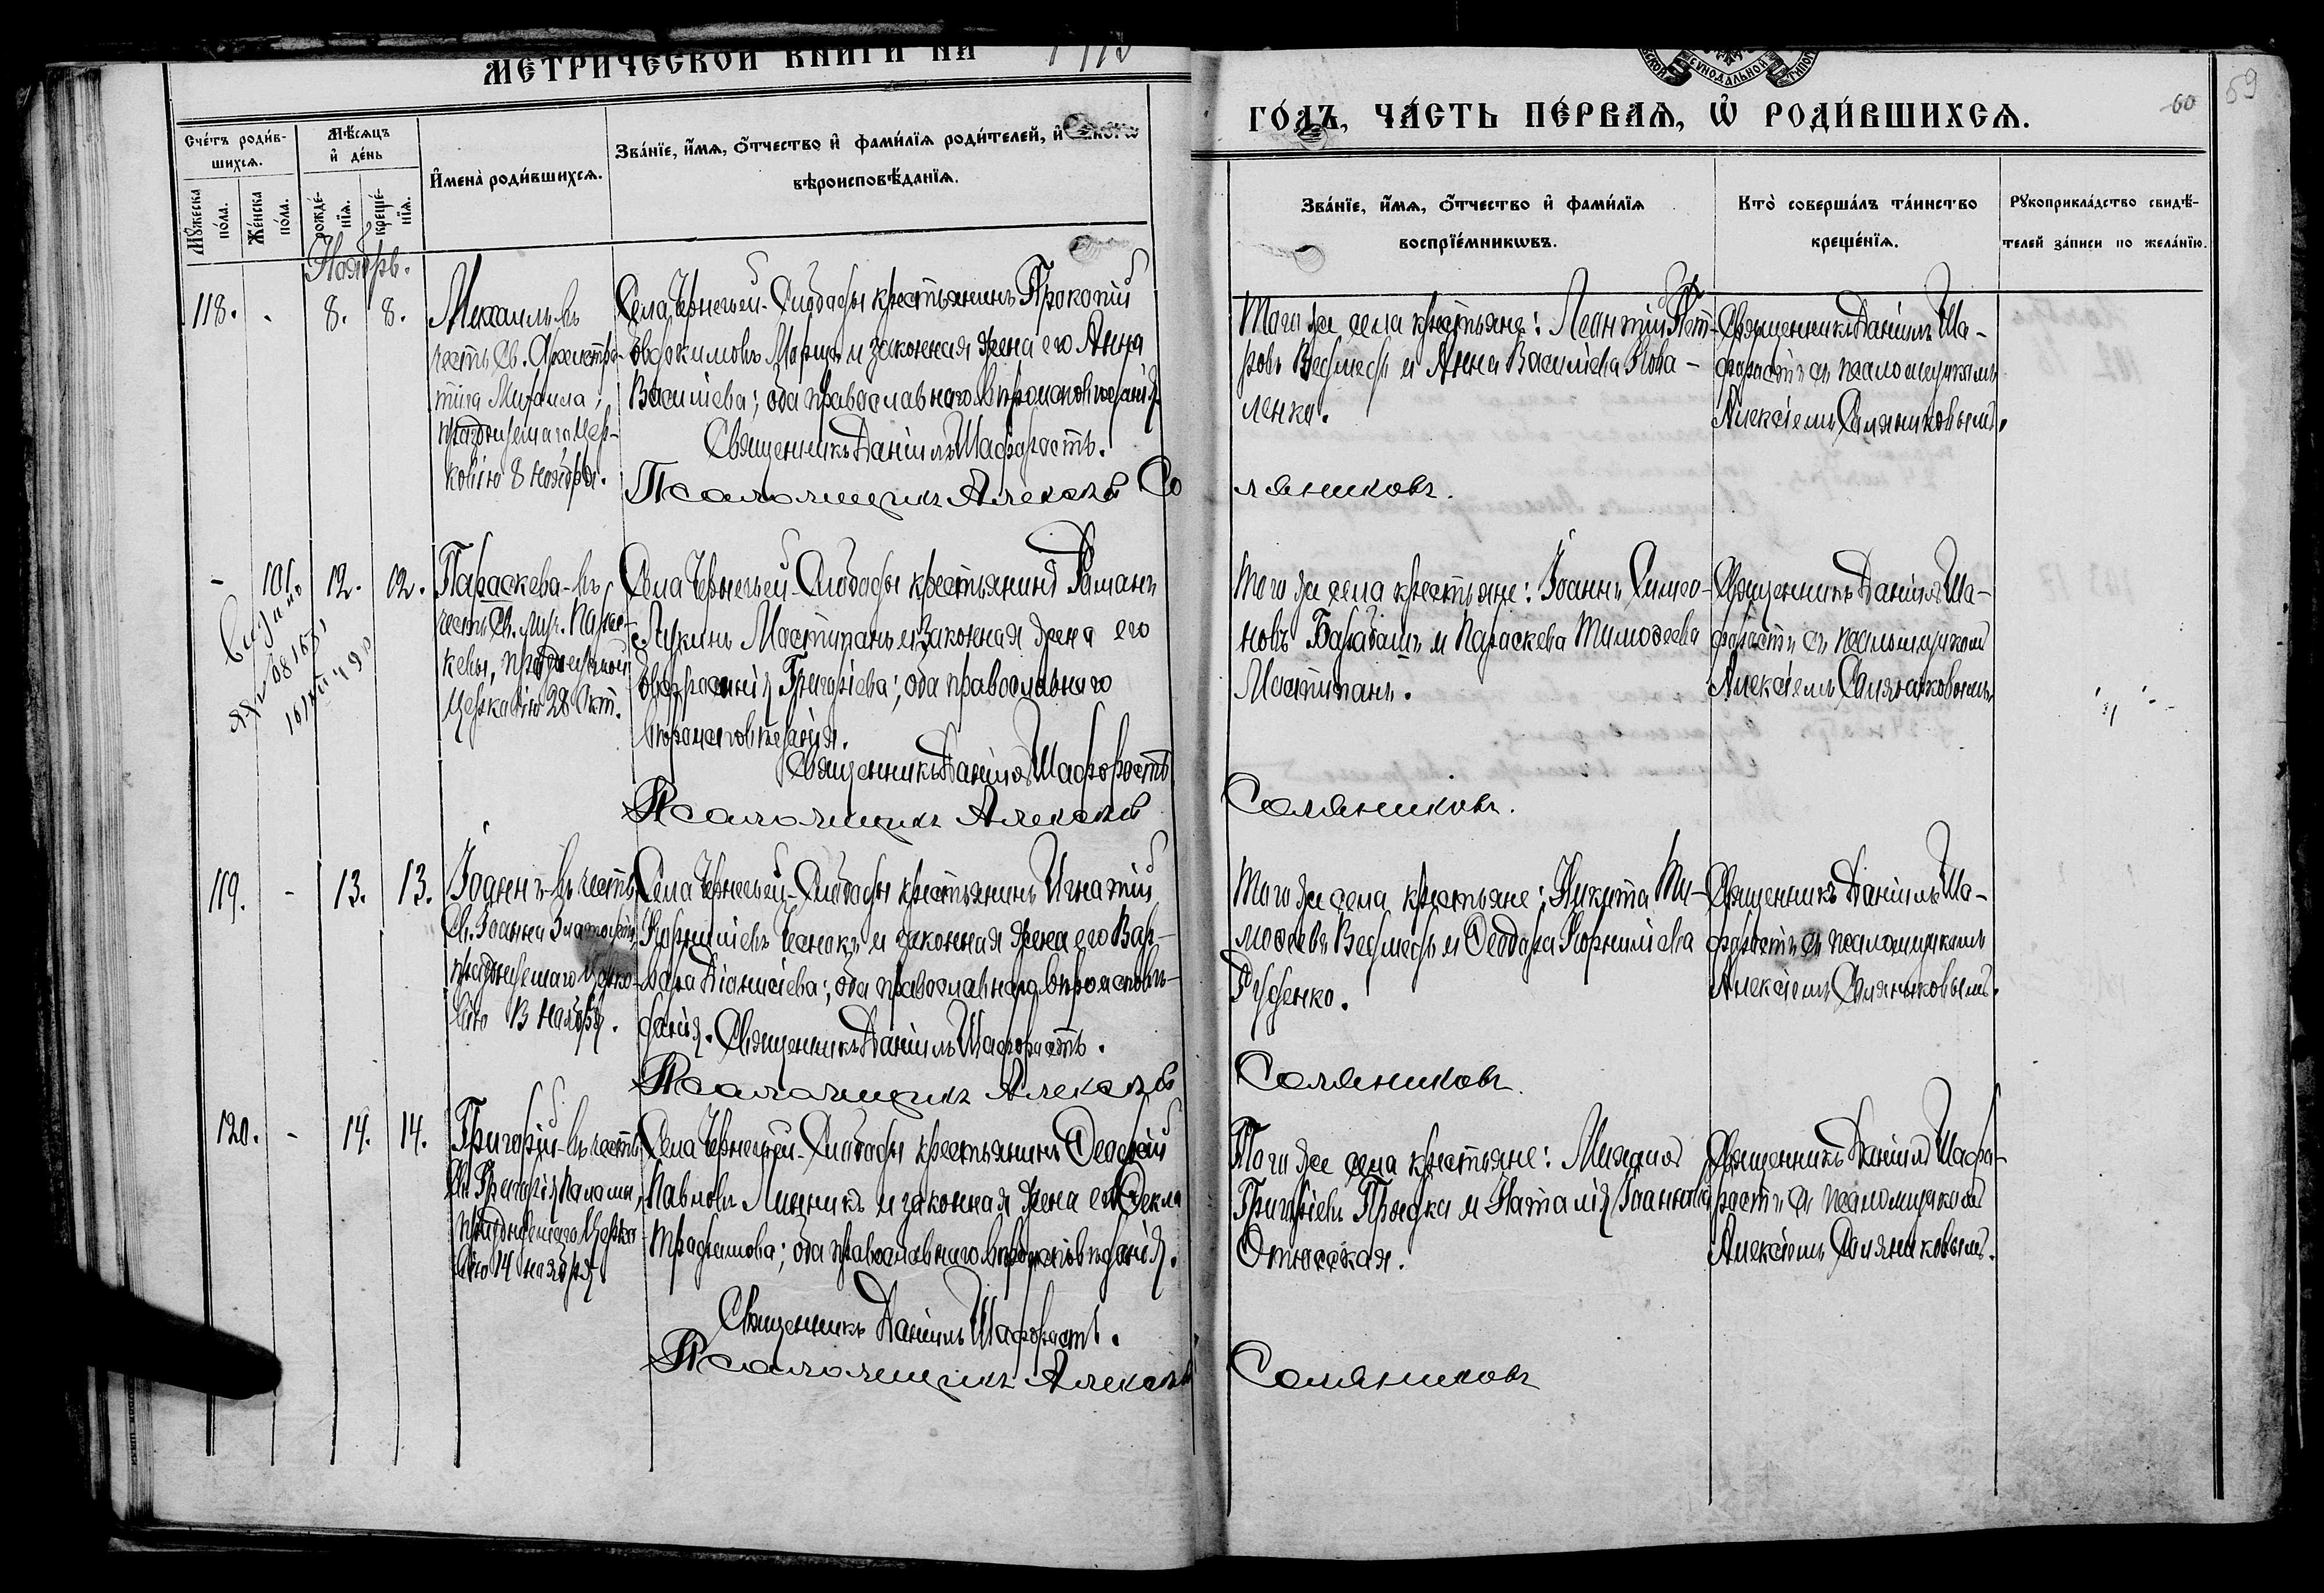 МЕТРИЧЕСКОЙ КНИГИ НА
ГО́ДЪ, ЧА́СТЬ ПЕ́РВАѦ, Ѡ҆ РОДИ́ВШИХСѦ.
60
59
Сче́тъ роди́в-
шихсѧ.
Мꙋ́жеска
по́ла.
Же́нска
по́ла.
Мѣ́сѧцъ
и҆ де́нь
рожде́-
нїѧ.
креще́-
нїѧ.
И҆мена̀ роди́вшихсѧ.
Зва́нїе, и҆́мѧ, ѻ҆́тчество и҆ фами́лїѧ роди́телей, и҆
вѣроисповѣ́данїѧ.
Зва́нїе, и҆́мѧ, ѻ҆́тчество и҆ фами́лїѧ
воспрїе́мникѡвъ.
Кто̀ соверша́лъ та́инство
креще́нїѧ.
Рꙋкоприкла́дство свидѣ́-
телей за́писи по жела́нїю.
Ноябрь.
118. . 8. 8.
Михаилъ въ
честь Св. Архистра-
тига Михаила,
празднуемаго Цер-
ковію 8 ноября.
Села Чернечьей-Слободы крестьянинъ Прокопій
Евдокимовъ Мориа и законная жена его Анна
Василіева; оба православнаго вѣроисповѣданія.
Священникъ Даніилъ Шафорость.
Псаломщикъ Алексѣй Со
ляниковъ.
Того же села крестьяне: Леонтій Пет-
ровъ Ведмедь и Анна Василіева Кова-
ленко.
Священникъ Даніилъ Ша-
форость съ псаломщикомъ
Алексіемъ Соляниковымъ.
- 101. 12. 12.
Параскева-въ
честь Св. муч. Парас-
кевы, празднуемой
Церковію 28 Окт.
Села Чернечьей-Слободы крестьянинъ Романъ
Лукинъ Маститанъ и законная жена его
Евфросинія Григоріева; оба православнаго
вѣроисповѣданія.
Священникъ Даніилъ Шафорость
Псаломщикъ Алексѣй
Соляниковъ.
Того же села крестьяне: Іоаннъ Симео-
новъ Барабашъ и Параскева Тимоѳеева
Маститанъ.
Священникъ Даніилъ Ша-
форость съ псаломщикомъ
Алексіемъ Соляниковымъ
119. - 13. 13.
Іоаннъ-въ честь
Св. Іоанна Златоуста,
празднуемаго Церко-
вію 13 ноября.
Села Чернечьей-Слободы крестьянинъ Игнатій
Корниліевъ Чеснокъ и законная жена его Вар-
вара Діонисіева; оба православнаго вѣроисповѣ-
данія. Священникъ Даніилъ Шафорость.
Псаломщикъ Алексѣй
Соляниковъ.
Того же села крестьяне: Никита Ти-
моѳеевъ Ведмедь и Ѳеодора Корниліева
Руденко.
Священникъ Даніилъ Ша-
форость съ псаломщикомъ
Алексіемъ Соляниковымъ.
120. - 14. 14.
Григорій-въ честь
Св. Григорія Паламы,
празднуемаго Церко-
вію 14 ноября
Села Чернечьей-Слободы крестьянинъ Ѳеодосій
Павловъ Линникъ и законная жена его Ѳекла
Трофимова; оба православнаго вѣроисповѣданія.
Священникъ Даніилъ Шафорость.
Псаломщикъ Алексѣй
Соляниковъ
Того же села крестьяне: Михаилъ
Григоріевъ и Наталія Іоаннова
Священникъ Даніилъ Шафо-
рость съ псаломщикомъ
Алексіемъ Соляниковымъ.